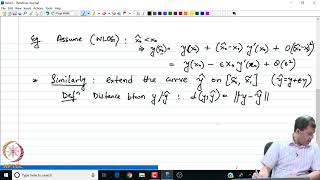 Note1 - Windows Journal
Eg. Assume (WLOG): x̂₀ < x₀
⇒ y(x̂₀) = y(x₀) + (x̂₀-x₀) y'(x₀) + O((x̂₀-x₀)²)
= y(x₀) - εX₀ y'(x₀) + O(ε²)
* Similarly: extend the curve ŷ on [x̂₀, x̂₁] (ŷ = y + εη)
Defⁿ Distance btwn y/ŷ: d(y,ŷ) = ||y - ŷ||